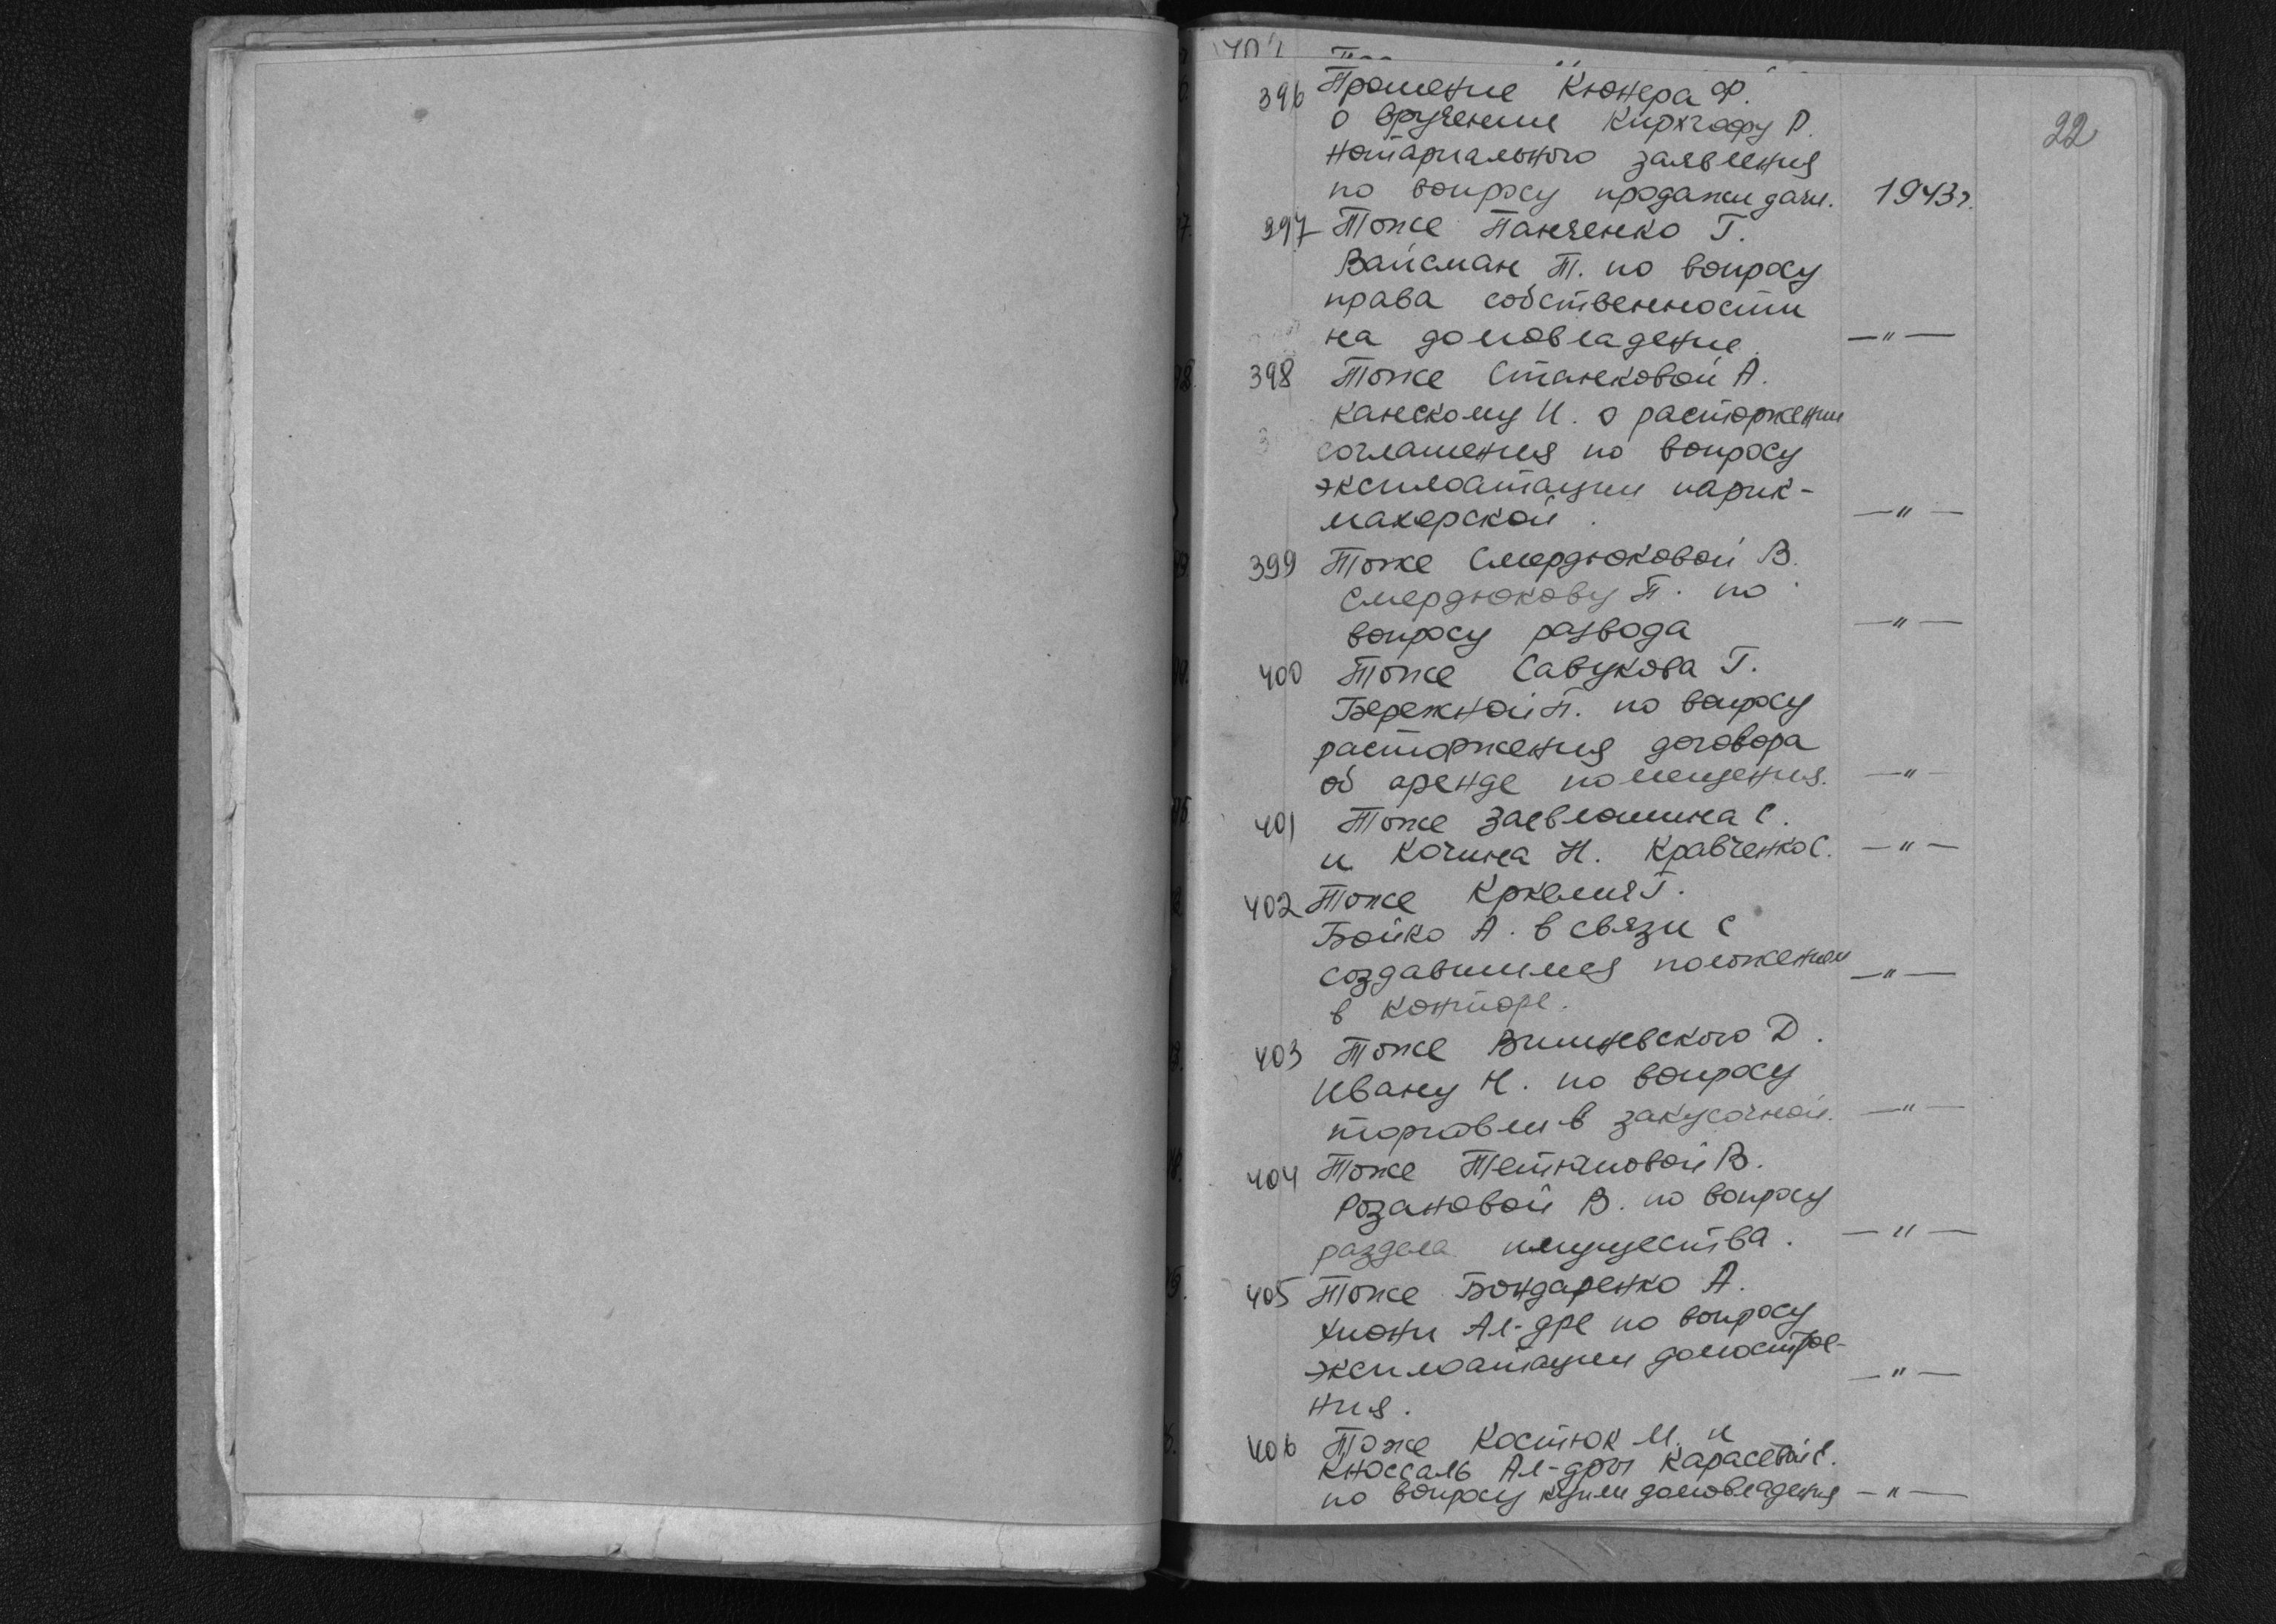 22
396 Прошение Кюнера Ф.
о вручении Кирхгофу Р.
нотариального заявления
по вопросу продажи дачи. 1943 г.
397 Тоже Панченко Г.
Вайсман Т. по вопросу
права собственности
на домовладение. —"—
398 Тоже Станковой А.
Канскому И. о расторжении
соглашения по вопросу
эксплоатации парик-
махерской. —"—
399 Тоже Смердюковой В.
Смердюкову П. по
вопросу развода —"—
400 Тоже Савукова Г.
Бережной П. по вопросу
расторжения договора
об аренде помещения. —"—
401 Тоже С.
и Кочина Н. Кравченко С. —"—
402 Тоже Г.
Бойко А. в связи с
создавшимся положением —"—
в конторе.
403 Тоже Вишневского Д.
Ивану Н. по вопросу
торговли в закусочной. —"—
404 Тоже В.
Розановой В. по вопросу
раздела имущества. —"—
405 Тоже Бондаренко А.
Хиони Ал-дре по вопросу
эксплоатации домострое-
ния. —"—
406 Тоже Костюк М. и
Кноссаль Ал-дры Карасевой Е.
по вопросу купли домовладения —"—